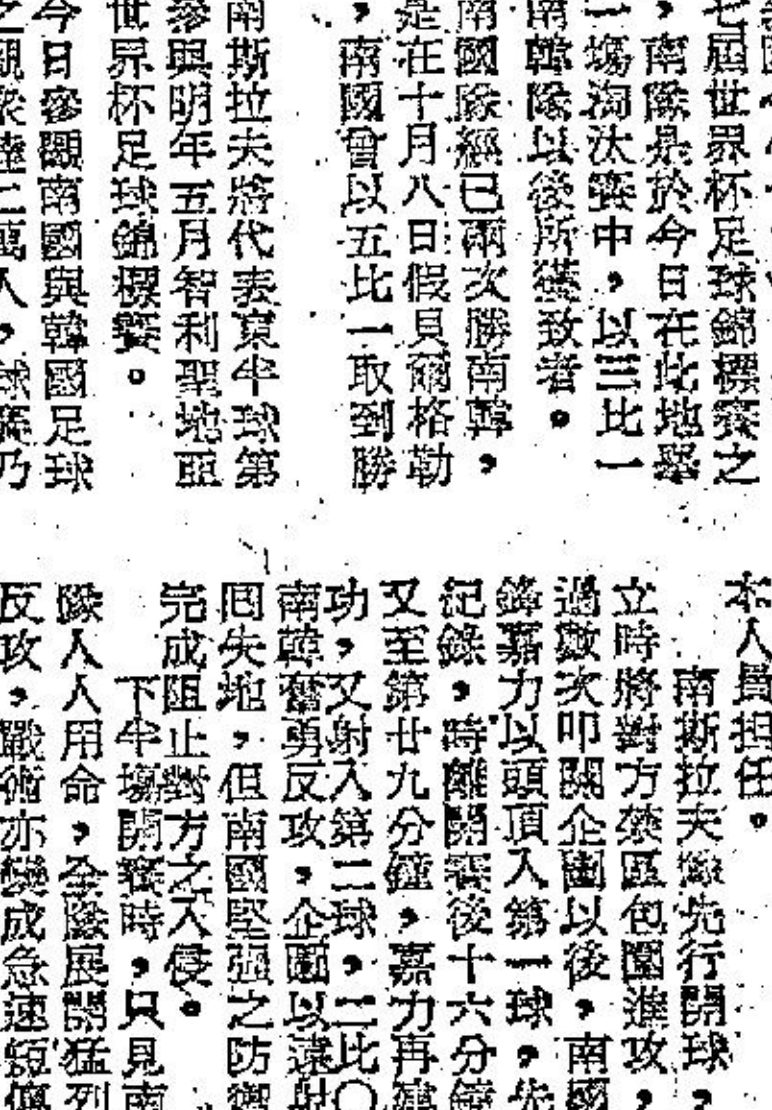 七屆世界杯足球錦標賽之
，南隊是於今日在此地舉
一場淘汰賽中，以三比一
南韓隊以後所獲致者。
南國隊經已兩次勝南韓，
是在十月八日假貝爾格勒
，南國曾以五比一取到勝
南斯拉夫將代表東半球第
參與明年五月智利聖地亞
世界杯足球錦標賽。
今日參觀南國與韓國足球
之觀衆達二萬人，球賽乃
本人員担任。
南斯拉夫隊先行開球，
立時將對方禁區包圍進攻，
過數次叩關企圖以後，南國
鋒嘉力以頭頂入第一球，先
紀錄，時離開賽後十六分鐘
又至第廿九分鐘，嘉力再建
功，又射入第二球，二比〇
南韓奮勇反攻，企圖以遠射
回失地，但南國堅强之防禦
完成阻止對方之入侵。
下半塲開賽時，只見南
隊人人用命，全隊展開猛烈
反攻，戰術亦變成急速短傳